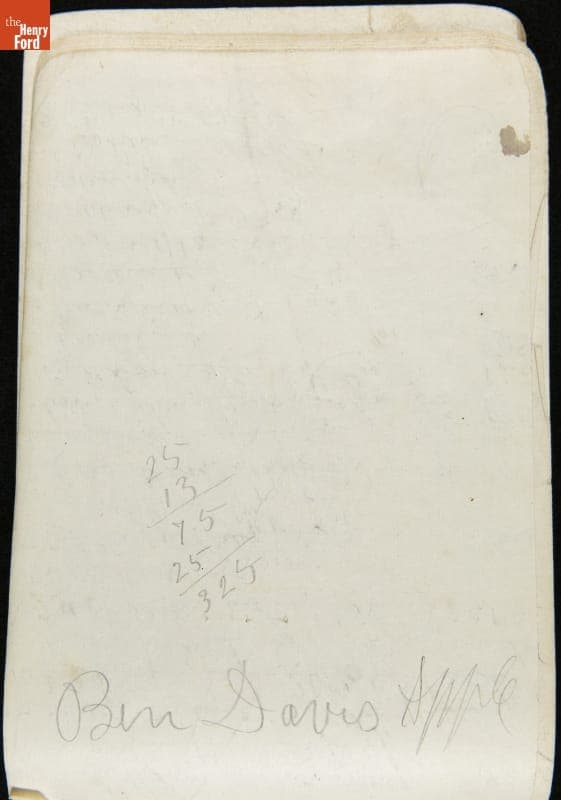 the
Henry
Ford
25
13
75
25
325
Ben Davis Apple